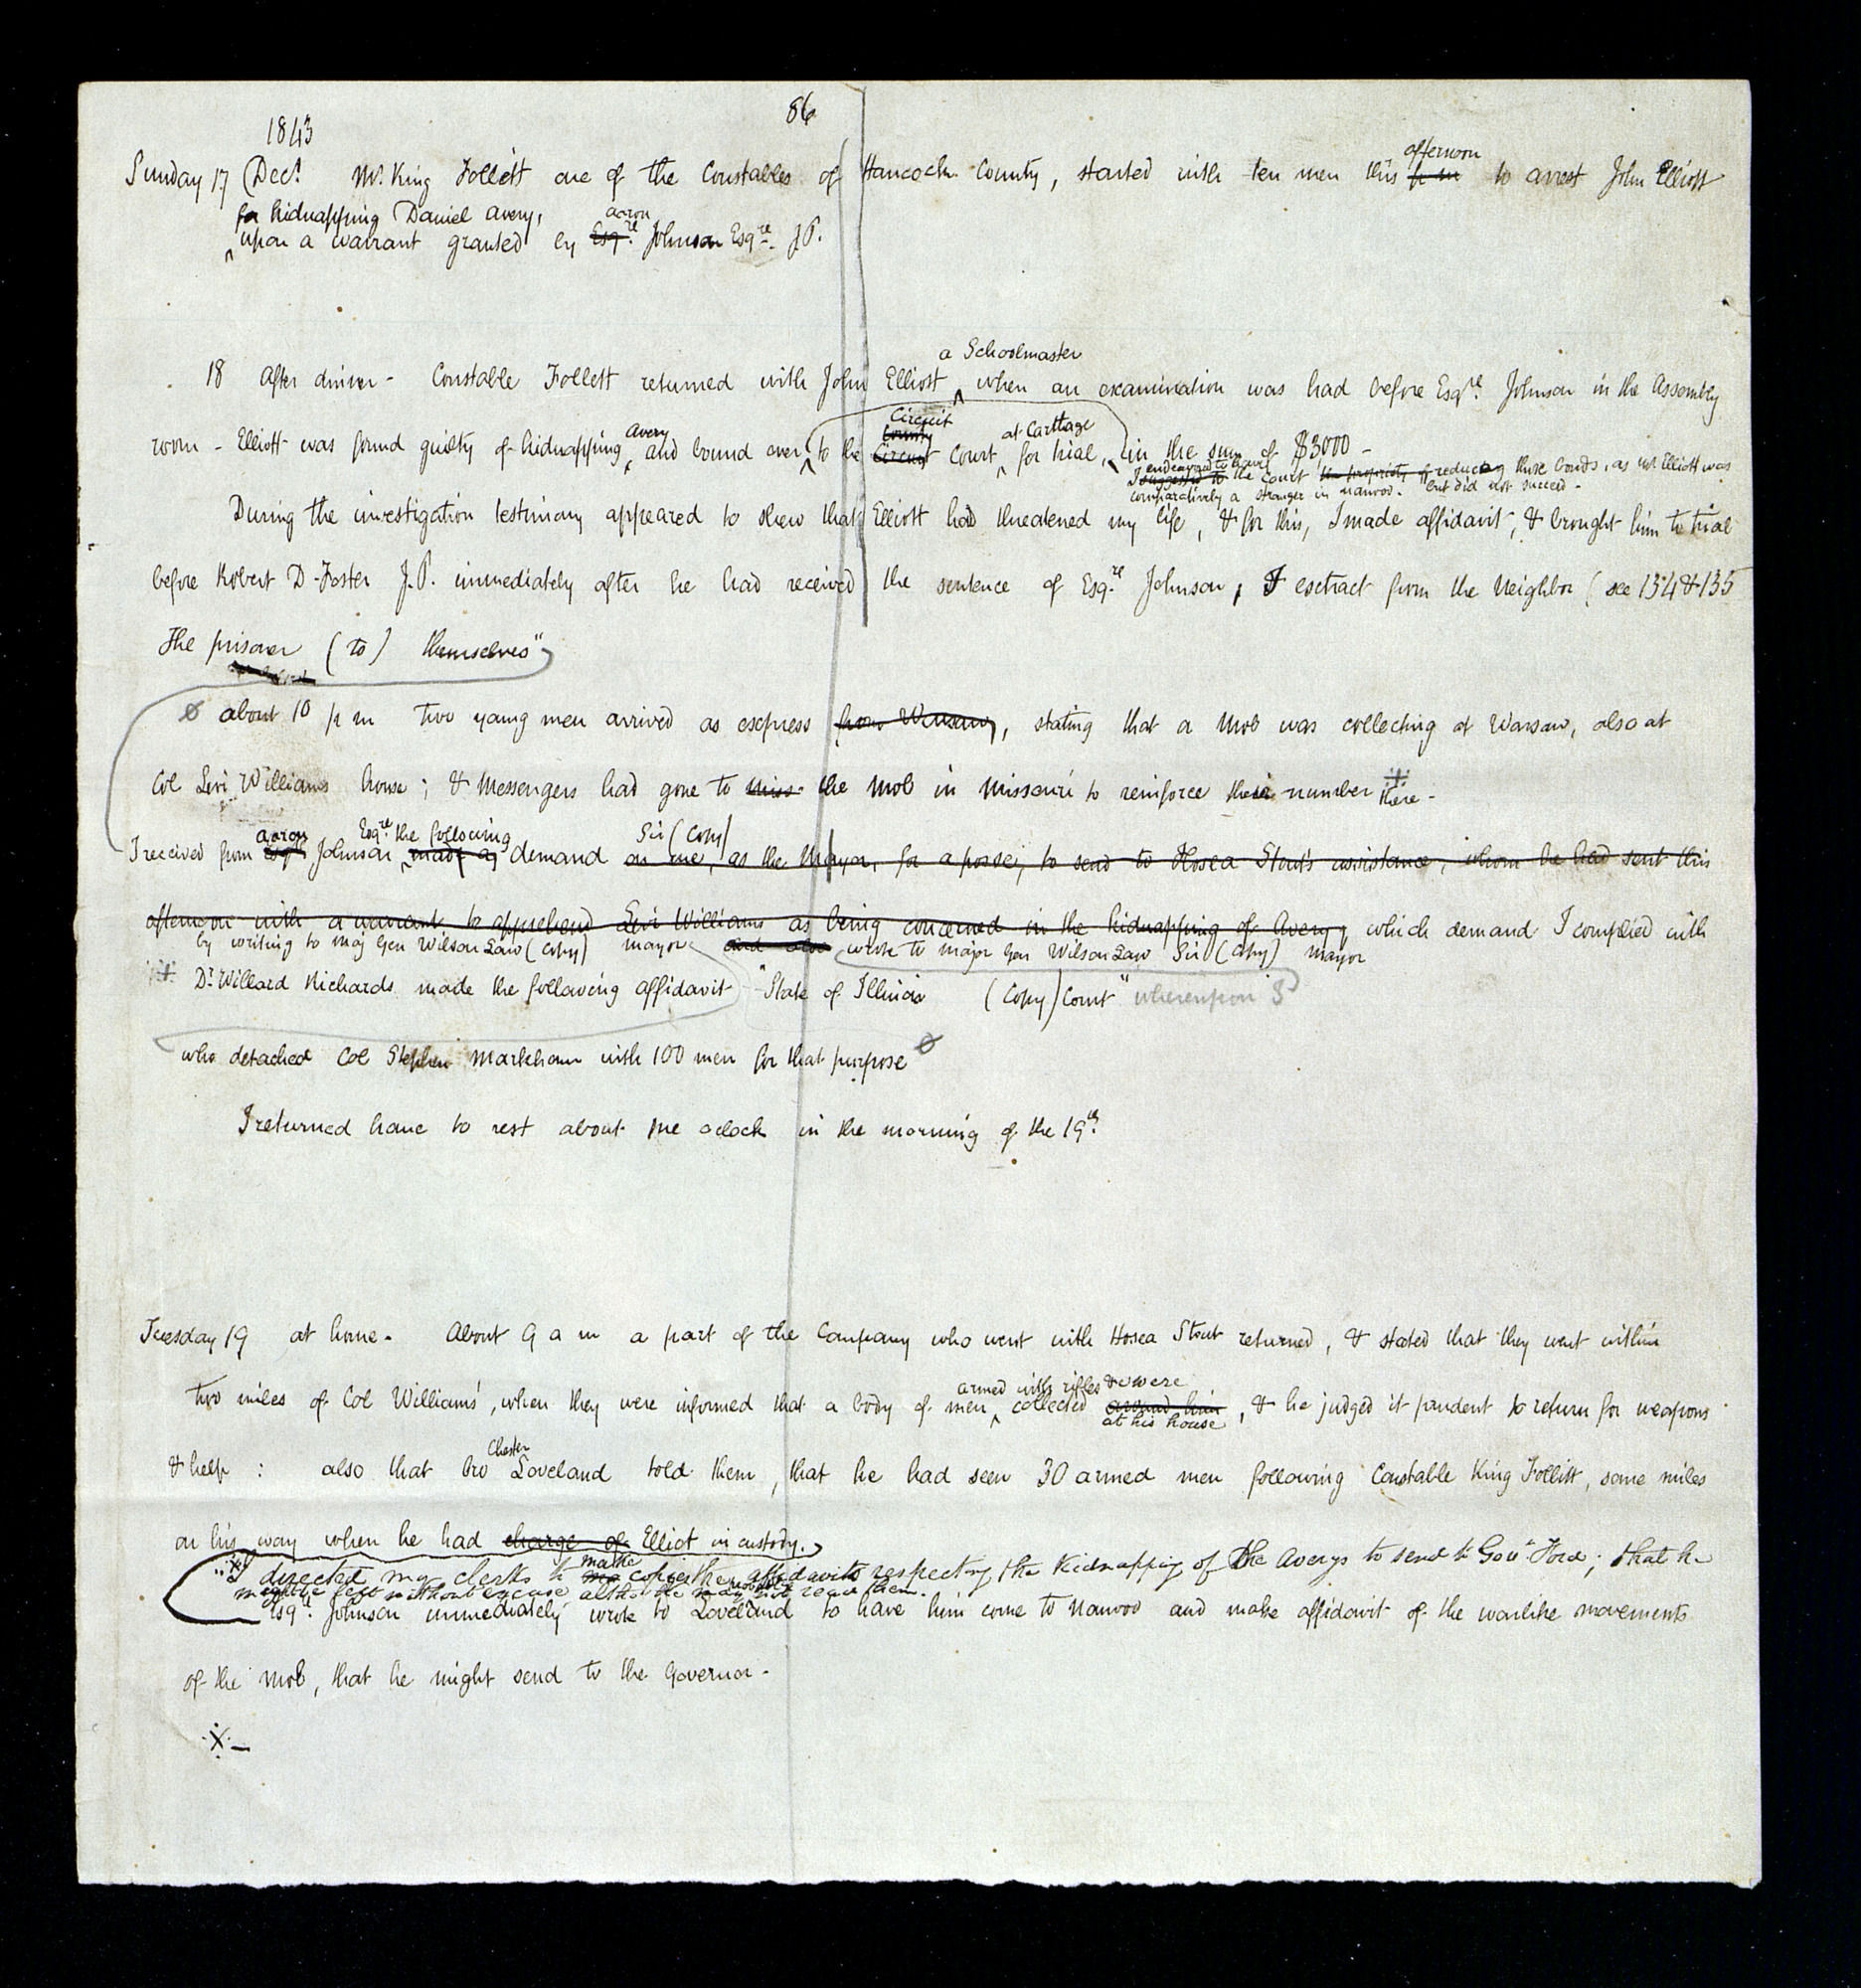 86
1843
Sunday 17 Decr. Mr. King Follett one of the Constables of Hancock County, started with ten men this p m afternoon to arrest John Elliott
for kidnapping Daniel Avery,
upon a warrant granted by Esqre. aaron Johnson Esqre. J.P.
a Schoolmaster
18 after dinner - Constable Follett returned with John Elliott when an examination was had before Esqre. Johnson in the Assembly
Avery Circuit County at Carthage
room - Elliott was found guilty of kidnapping, and bound over to the Circuit Court for trial, in the sum of $3000 -
I suggested to endeavored to have the court the propriety of reducing these bonds, as Elliott was
comparatively a stranger in nauvoo. but did not succeed -
During the investigation testimony appeared to shew that Elliott had threatened my life, & for this, I made affidavit, & brought him to trial
before Robert D. Foster J.P. immediately after he had received the sentence of Esqre. Johnson, I extract from the Neighbor (see 134 & 135
The prisoner (to) themselves"
about 10 p m two young men arrived as express from Warsaw, stating that a mob was collecting at Warsaw, also at
Col Levi Williams house; & Messengers had gone to Miss the mob in Missouri to reinforce their number there -
aaron Esqre. the following Sir (Copy)
I received from Esqr Johnson made a demand on me, as the Mayor, for a posse, to send to Hosea Stout's assistance, whom he had sent this
afternoon with a warrant to apprehend Levi Williams as being concerned in the kidnapping of Avery, which demand I complied with
by writing to Maj Gen Wilson Law (Copy) mayor and also wrote to major Gen Wilson Law Sir (Copy) mayor
Dr. Willard Richards made the following affidavit "State of Illinois (Copy) Court" whereupon I
who detached Col Stephen Markham with 100 men for that purpose
I returned home to rest about one oclock in the morning of the 19th.
Tuesday 19 at home - About 9 a m a part of the Company who went with Hosea Stout returned, & stated that they went within
armed with rifles & were
two miles of Col Williams', when they were informed that a body of men collected around him at his house, & he judged it prudent to return for weapons
Chester
& help : also that bro Loveland told them, that he had seen 30 armed men following Constable King Follitt, some miles
on his way when he had charge of Elliot in custody.
I directed my clerks to make copies the affidavits respecting the Kidnapping of the Averys to send to Govr. Ford; that he
might be left without excuse altho he may probably not read them.
Esqr. Johnson immediately wrote to Loveland to have him come to Nauvoo and make affidavit of the warlike movements
of the mob, that he might send to the Governor -